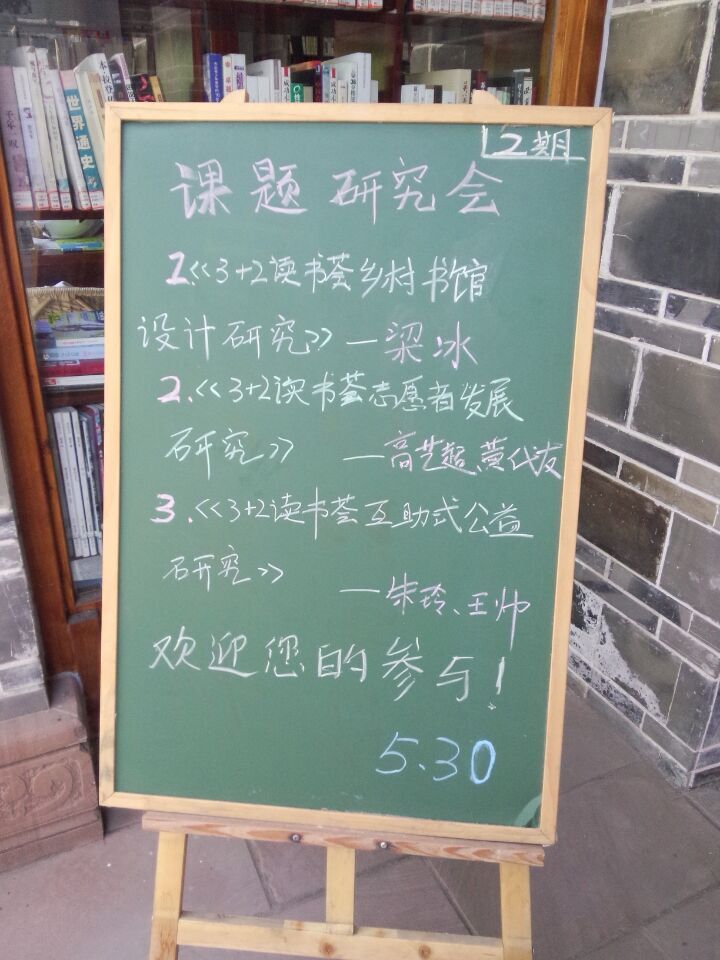 2期
课题研究会
1.<<3+2读书荟乡村书馆
设计研究>>—梁冰
2.<<3+2读书荟志愿者发展
研究>> —高艺超、黄代友
3.<<3+2读书荟互助式公益
研究>>
—朱玲、王帅
欢迎您的参与!
5.30
世界通史